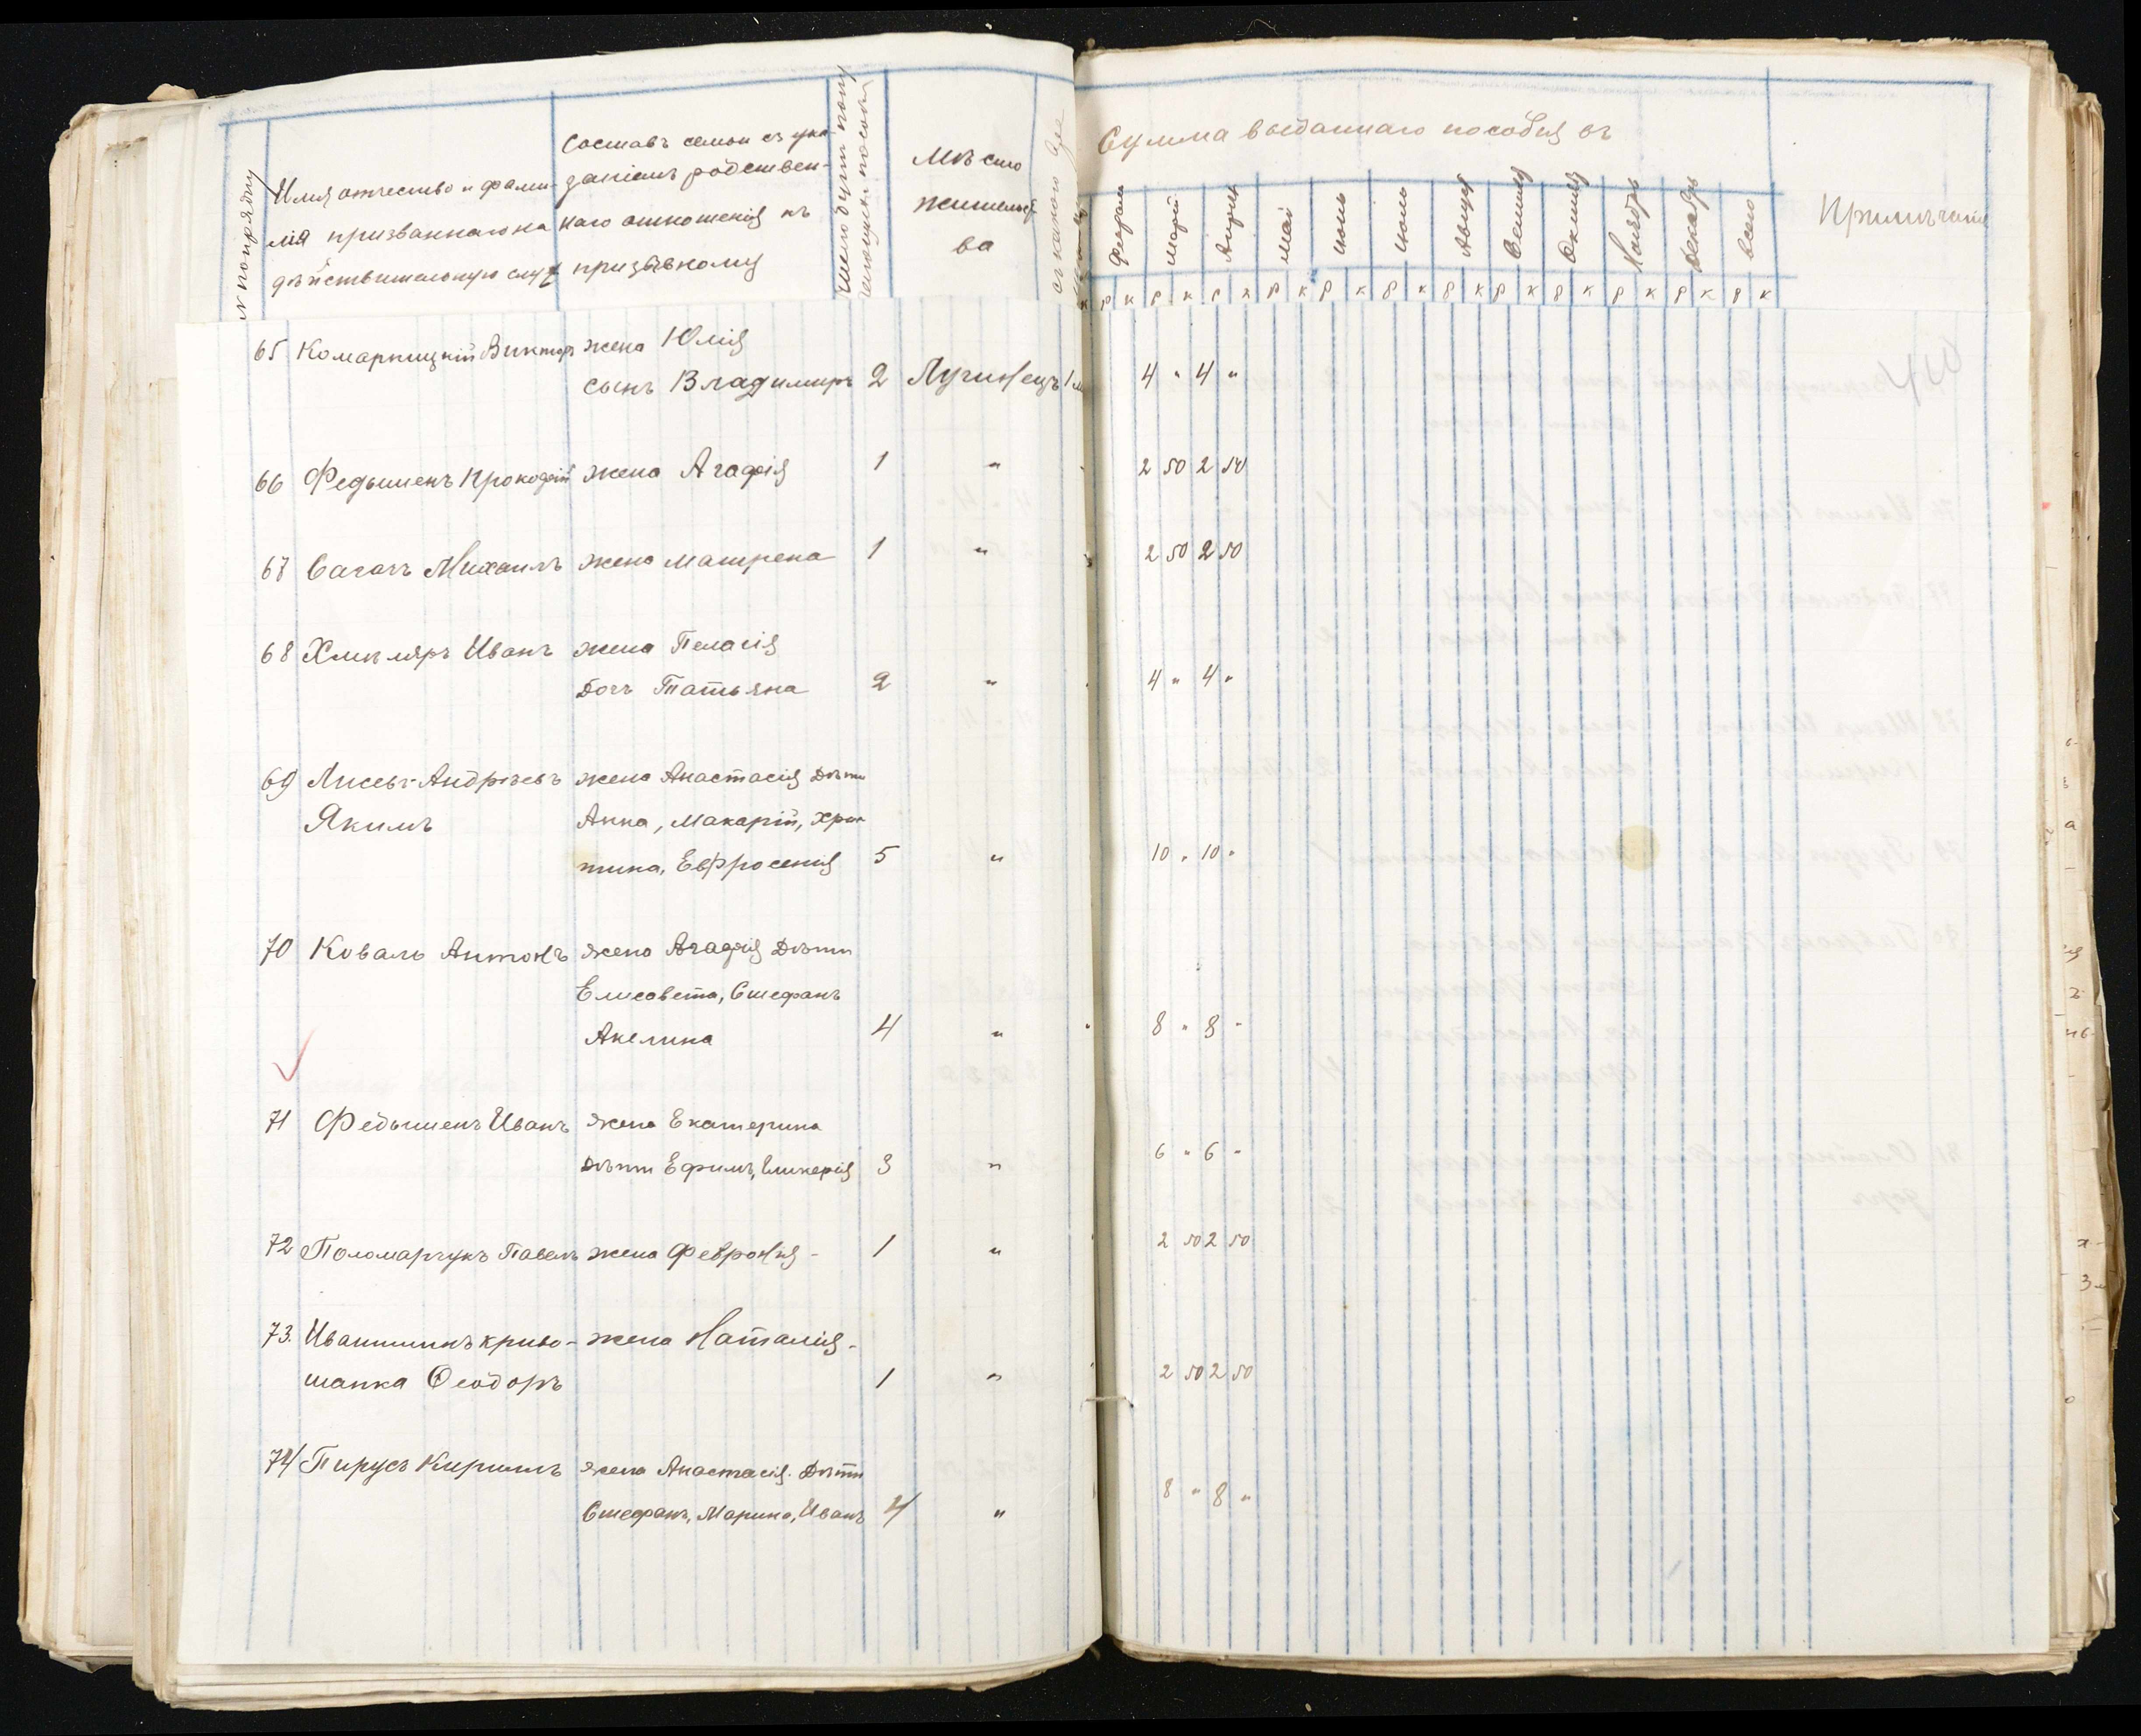 № по порядку
Имя отчество и фами-
лія призваннаго на
дѣйствительную служ
Составъ семьи съ ука
заніемъ родствен-
наго отношенія къ
призывному
Мѣсто
жительст
ва
Сумма выданнаго пособія въ
Февраль Мартъ Апрель Май Іюнь Іюль Августъ Сентябр Октябр Ноябрь Декабрь Всего
Примѣчаніе
р к р к р к р к р к р к р к р к р к р к р к р к
65 Комарницкій Викторъ жена Юлія
сынъ Владимиръ 2 Лучинецъ 4 " 4 "
66 Федышенъ Прокофій жена Агафія 1 " 2 50 2 50
67 Сагачъ Михаилъ жена Матрена 1 " 2 50 2 50
68 Хмеляръ Иванъ жена Пелагія
дочь Татьяна 2 " 4 " 4 "
69 Лисевъ-Андрѣевъ жена Анастасія Дѣти
Якимъ Анна, Макарій, Хрис
тина, Евфросенія 5 " 10 " 10 "
70 Коваль Антонъ жена Агафія Дѣти
Елисавета, Стефанъ
Акелина 4 " 8 " 8 "
71 Федышенъ Иванъ жена Екатерина
Дѣти Ефимъ, Гликерія 3 " 6 " 6 "
72 Поломарчукъ Павелъ жена Февронія - 1 " 2 50 2 50
73. Иванишинъ криво- жена Наталія -
шапка Ѳеодоръ 1 " 2 50 2 50
74 Пирусъ Кирилъ жена Анастасія. Дѣти
Стефанъ, Марина, Иванъ 4 " 8 " 8 "